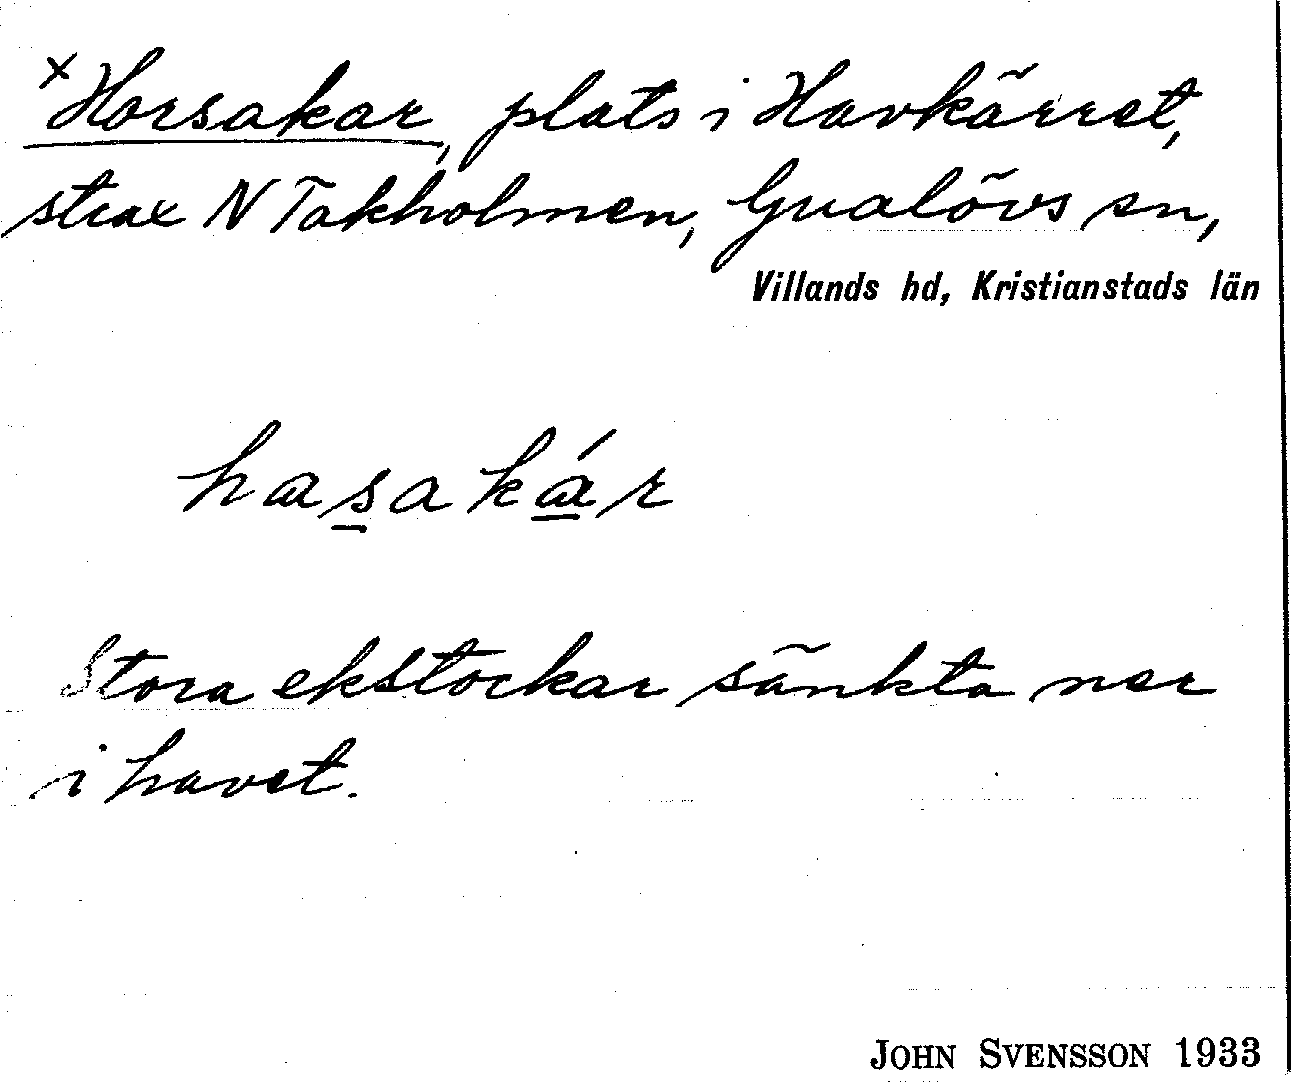 x Horsakar, plats i Havkärret,
strax N Takholmen, Gualövs sn,
Villands hd, Kristianstads län
hasakár
Stora ekstockar sänkta ner
i havet.
JOHN SVENSSON 1933